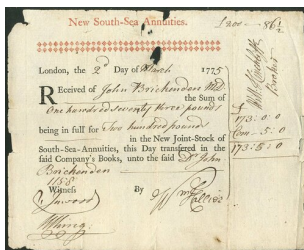 New South-Sea Annuities.
£200 - 86½
London, the 2d Day of March 1775
Received of John Brickenden
the Sum of
One hundred seventy three pounds
being in full for Two hundred pounds
in the New Joint-Stock of
South-Sea-Annuities, this Day transferred in the
said Company's Books, unto the said John
Brickenden
1158
Witness By
Wm
Will
Broker
£
173:0:0
Com - 5:0
173:5:0